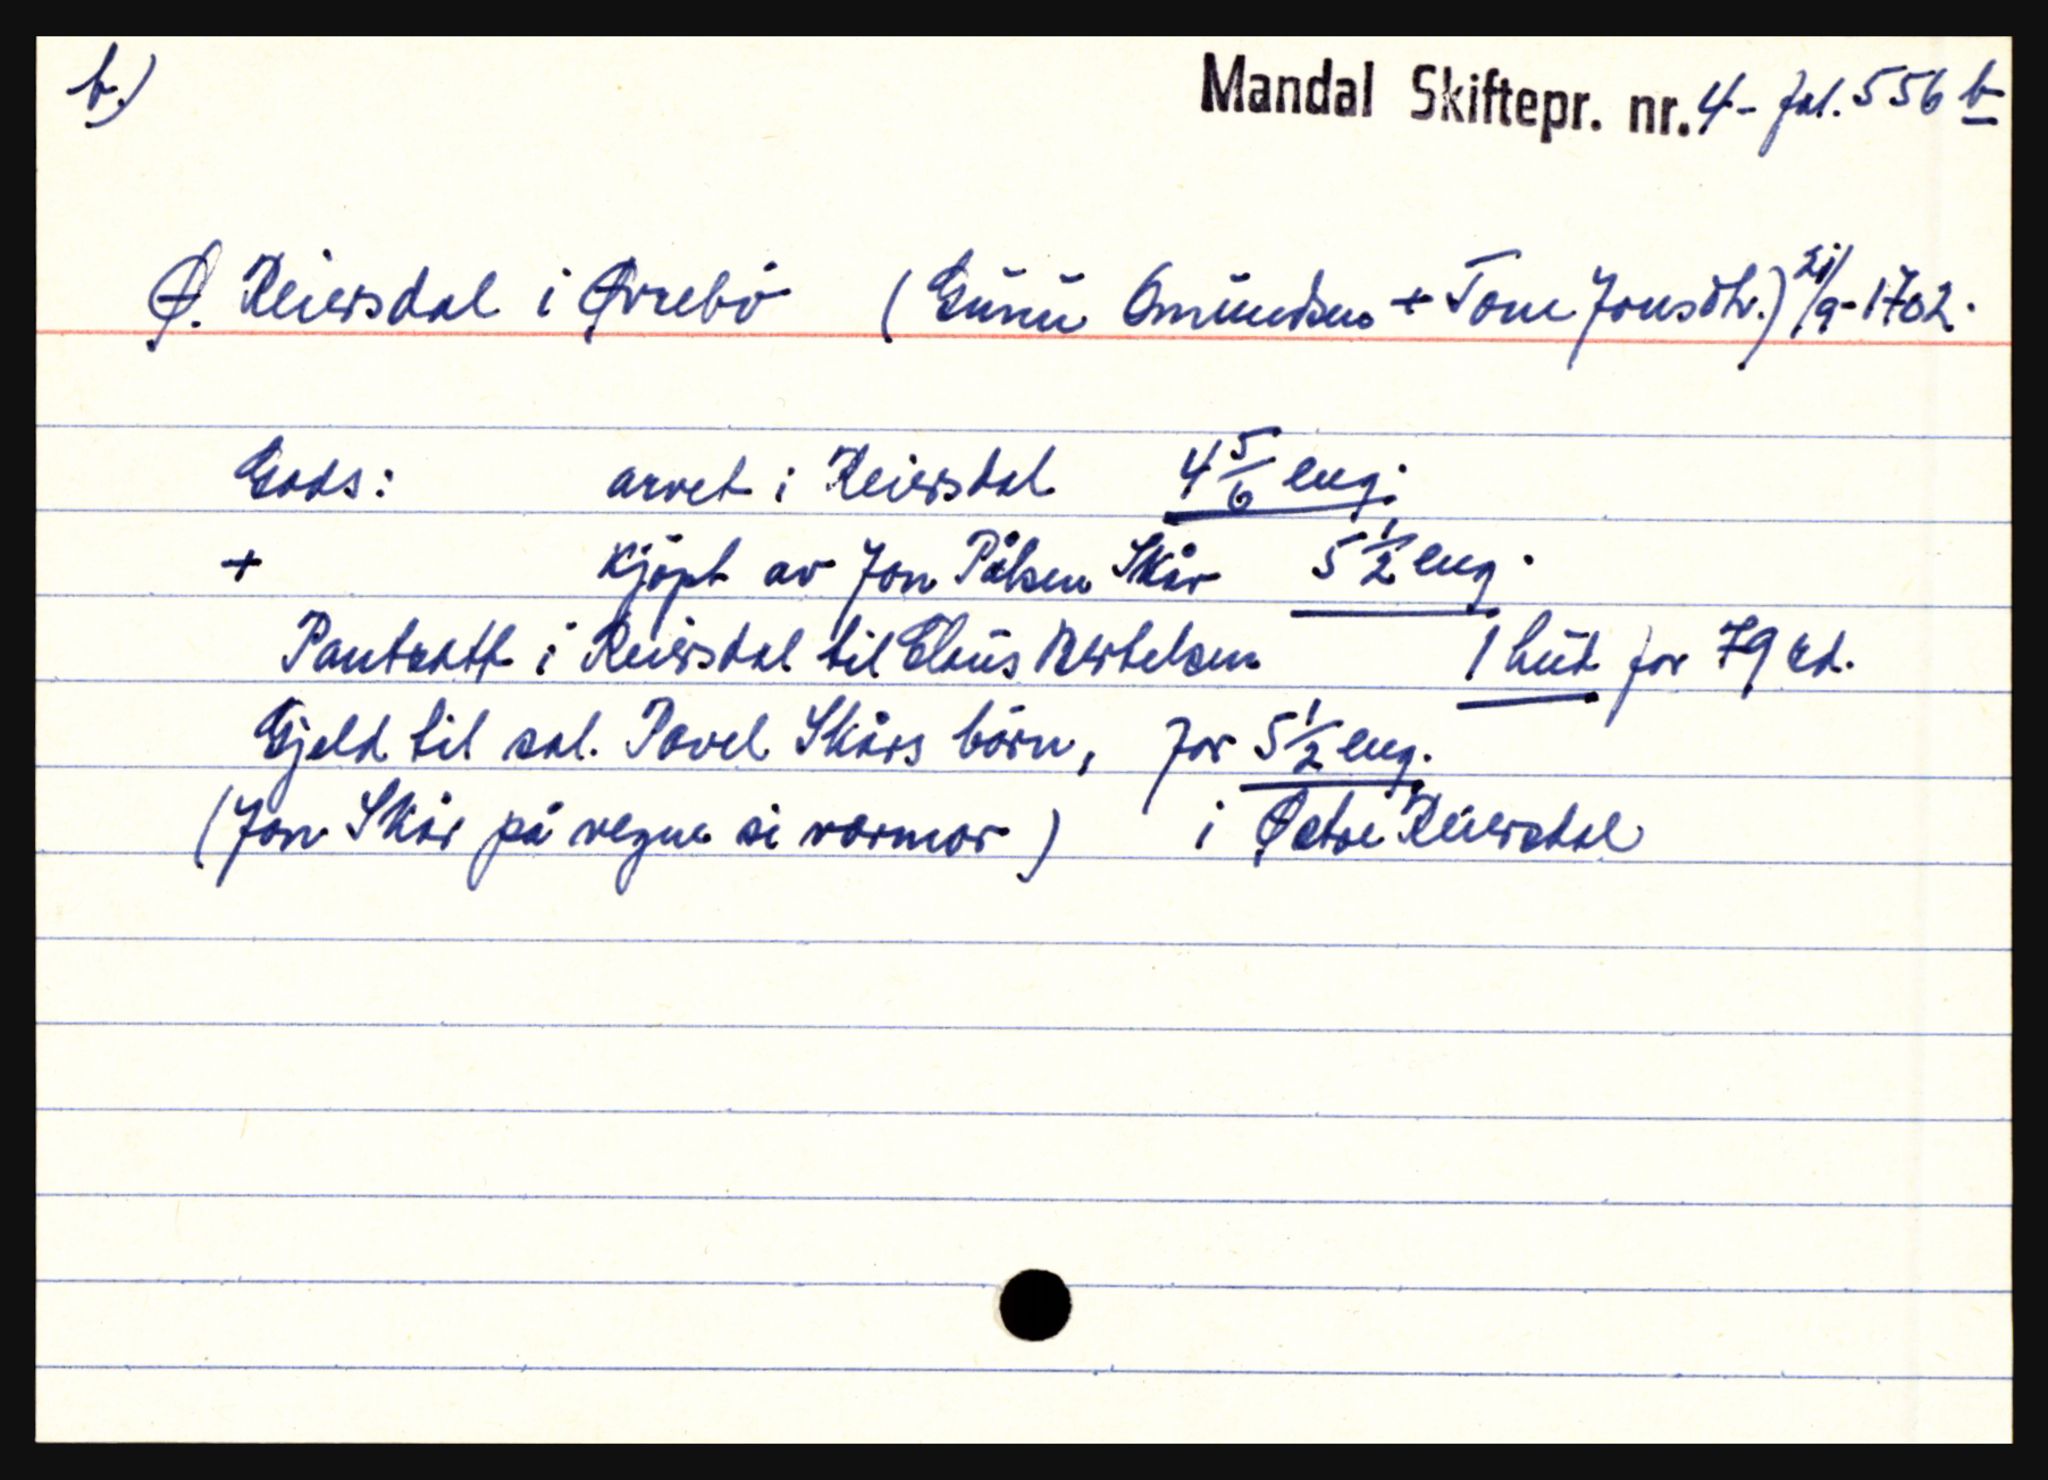 b.)
Mandal Skiftepr. nr. 4 - fol. 556 b
Ø. Reiersdal i Øvrebö (Gunu Omundsen + Tone Jonsdtr.) 21/9-1702.
Gods: arvet i Reiersdal 4 5/6 eng.
+ Kjöpt av Jon Pålsen Skår 5 1/2 eng.
Pantsatt i Reiersdal til Claus Bertelsen 1 hud for 79 rd.
Gjeld til sal. Povel Skårs börn, for 5 1/2 eng.
(Jon Skår på vegne si vermor) i Østre Reiersdal